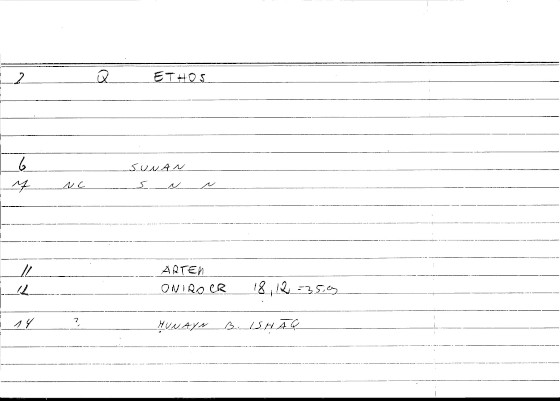 2 Q ETHOS
6 SUNAN
7 NC S N N
11 ARTEM
12 ONIROCR 18,12 =35,9
14 ? ḤUNAYN B. ISḤĀQ